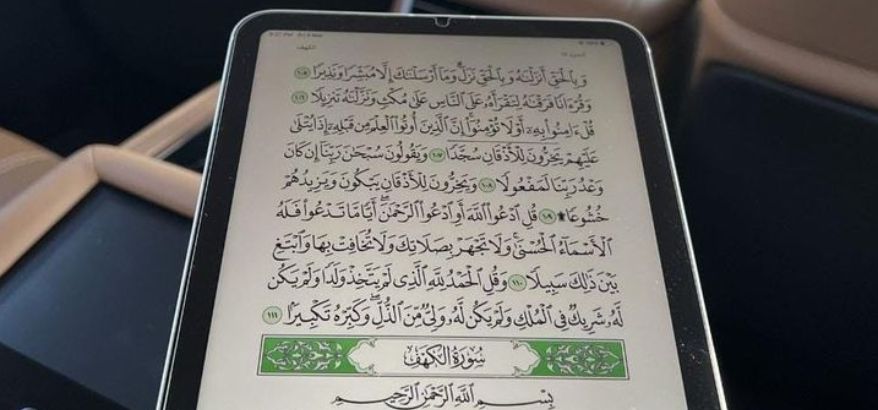 9:27 PM Fri 8 Mar
الكهف
الجزء ١٥
وَبِالْحَقِّ أَنزَلْنَٰهُ وَبِالْحَقِّ نَزَلَ ۗ وَمَا أَرْسَلْنَٰكَ إِلَّا مُبَشِّرًا وَنَذِيرًا ١٠٥
وَقُرْءَانًا فَرَقْنَٰهُ لِتَقْرَأَهُۥ عَلَى النَّاسِ عَلَىٰ مُكْثٍ وَنَزَّلْنَٰهُ تَنزِيلًا ١٠٦
قُلْ ءَامِنُوا۟ بِهِۦٓ أَوْ لَا تُؤْمِنُوٓا۟ ۚ إِنَّ الَّذِينَ أُوتُوا۟ الْعِلْمَ مِن قَبْلِهِۦٓ إِذَا يُتْلَىٰ
عَلَيْهِمْ يَخِرُّونَ لِلْأَذْقَانِ سُجَّدًا ١٠٧ وَيَقُولُونَ سُبْحَٰنَ رَبِّنَآ إِن كَانَ
وَعْدُ رَبِّنَا لَمَفْعُولًا ١٠٨ وَيَخِرُّونَ لِلْأَذْقَانِ يَبْكُونَ وَيَزِيدُهُمْ
خُشُوعًا ۩ ١٠٩ قُلِ ادْعُوا۟ اللَّهَ أَوِ ادْعُوا۟ الرَّحْمَٰنَ ۖ أَيًّا مَّا تَدْعُوا۟ فَلَهُ
الْأَسْمَآءُ الْحُسْنَىٰ ۚ وَلَا تَجْهَرْ بِصَلَاتِكَ وَلَا تُخَافِتْ بِهَا وَابْتَغِ
بَيْنَ ذَٰلِكَ سَبِيلًا ١١٠ وَقُلِ الْحَمْدُ لِلَّهِ الَّذِى لَمْ يَتَّخِذْ وَلَدًا وَلَمْ يَكُن
لَّهُۥ شَرِيكٌ فِى الْمُلْكِ وَلَمْ يَكُن لَّهُۥ وَلِىٌّ مِّنَ الذُّلِّ ۖ وَكَبِّرْهُ تَكْبِيرًۢا ١١١
سُورَةُ الْكَهْفِ
بِسْمِ اللَّهِ الرَّحْمَٰنِ الرَّحِيمِ